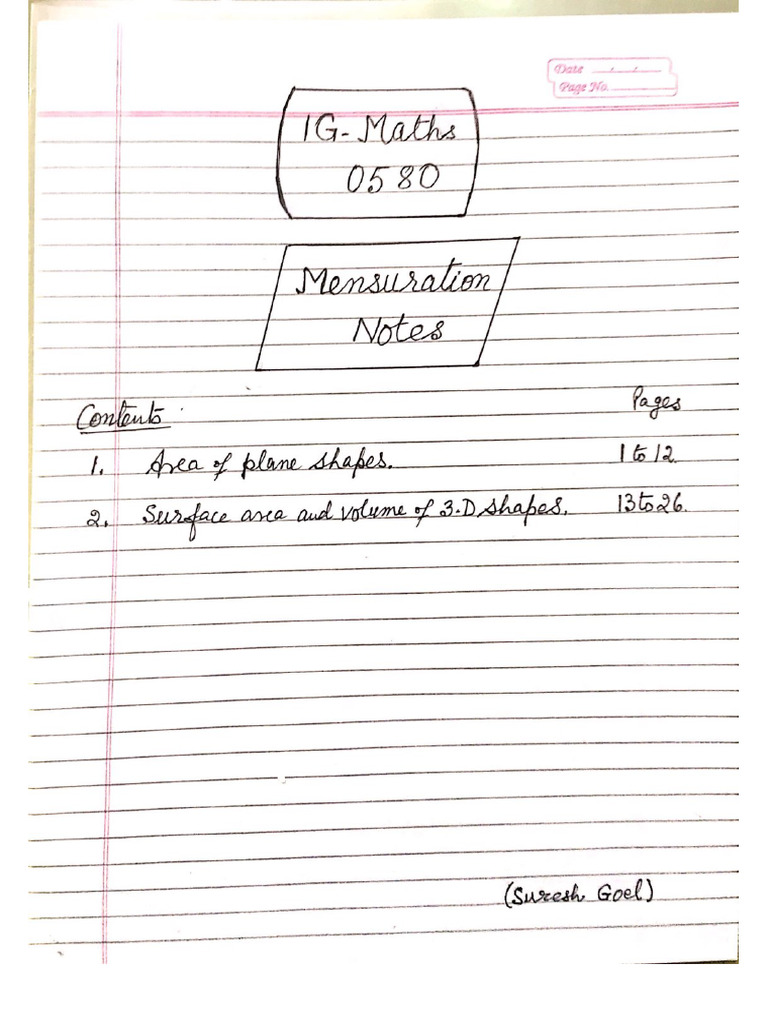 Date
Page No.
IG-Maths
0580
Mensuration
Notes
Contents Pages
1. Area of plane shapes. 1 to 12.
2. Surface area and volume of 3-D shapes. 13 to 26.
(Suresh Goel)